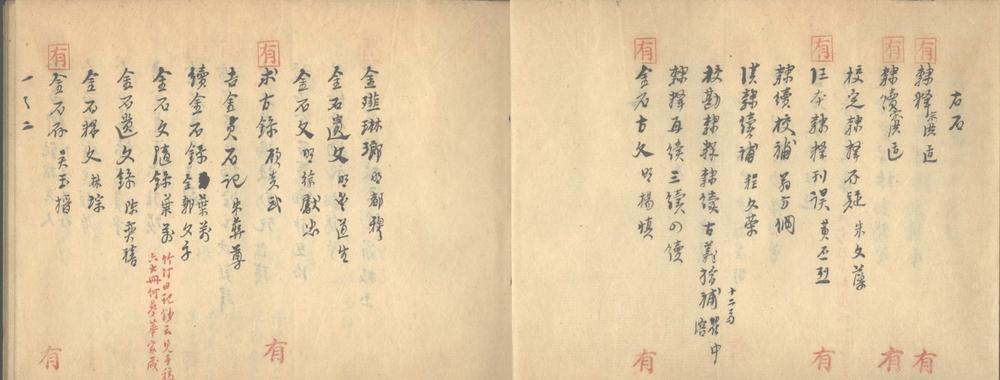 石石
有 隸釋 宋洪适 有
有 隸續 宋洪适 有
校定隸釋存疑 朱文藻
有 汪本隸釋刊誤 黃丕烈 有
隸續校補 翁方綱
漢隸續補 程文榮
校勘隸釋隸續古義拾補 十二卷 瞿中溶
隸釋再續三續四續
有 金石古文 明楊慎 有
金薤琳瑯 明都穆
金石遺文 明豐道生
金石文 明徐獻忠
有 求古錄 顧炎武 有
吉金貞石記 朱彝尊
續金石錄 葉萬
金石文隨錄 葉萬
竹汀日記鈔云見手稿
六大冊何夢華家藏
金石遺文錄 陳奕禧
金石釋文 林琮
有 金石存 吳玉搢 有